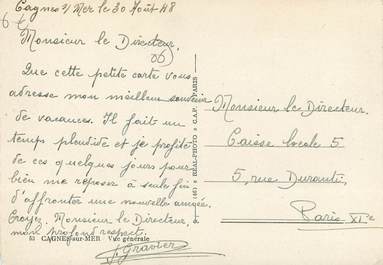 Cagnes s/ Mer le 30 Août 48
Monsieur le Directeur,
(06)
Que cette petite carte vous
adresse mon meilleur souvenir
de vacances. Il fait un
temps splendide et je profite
de ces quelques jours pour
bien me reposer à seule fin
d'affronter une nouvelle année.
Croyez, Monsieur le Directeur, à
mon profond respect.
J. Gravier
53 CAGNES-sur-MER Vue générale
RÉAL-PHOTO ★ C.A.P. PARIS
Monsieur le Directeur.
Caisse locale 5
5, rue Duranti,
Paris XIe